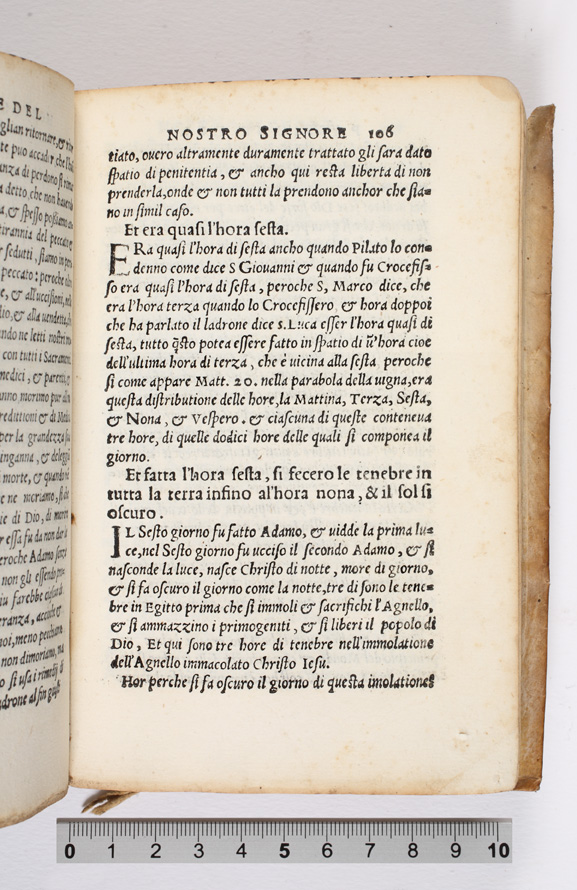 E DEL
glian ritornare, &
te puo accadir che
anza di perdono si
a detto, che non
a, & spesso possiamo
tirannia del peccato
sedutti, siamo in
peccato: peroche
e, & all'uccisioni,
lio, & alla uendetta,
ndo ne letti nostri
con tutti i Sacramen
nedici, & parenti,
nno morimo pur
redittioni & di
per la grandezza
inganna, & deleggia
morte, & quando
e ne moriamo, si
ie di Dio, di morte
er essa fu da non
eroche Adamo
non gli essendo
iu farebbe
eranza, accioche
noi, meno pecchiamo
non dimoriamo,
o si usa i rimedij di
adrone al fin
NOSTRO SIGNORE 106
tiato, ouero altramente duramente trattato gli sara dato
spatio di penitentia, & ancho qui resta liberta di non
prenderla, onde & non tutti la prendono anchor che sia=
no in simil caso.
Et era quasi l'hora sesta.
ERa quasi l'hora di sesta ancho quando Pilato lo con=
denno come dice S Giouanni & quando fu Crocefis=
so era quasi l'hora di sesta, peroche S, Marco dice, che
era l'hora terza quando lo Crocefissero, & hora doppoi
che ha parlato il ladrone dice s.Luca esser l'hora quasi di
sesta, tutto q̃sto potea essere fatto in spatio di ũ'hora cioe
dell'ultima hora di terza, che è uicina alla sesta peroche
si come appare Matt. 20. nella parabola della uigna, era
questa distributione delle hore, la Mattina, Terza, Sesta,
& Nona, & Vespero. & ciascuna di queste conteneua
tre hore, di quelle dodici hore delle quali si componea il
giorno.
Et fatta l'hora sesta, si fecero le tenebre in
tutta la terra infino al'hora nona, & il sol si
oscuro.
IL Sesto giorno fu fatto Adamo, & uidde la prima lu=
ce, nel Sesto giorno fu ucciso il secondo Adamo, & si
nasconde la luce, nasce Christo di notte, more di giorno,
& si fa oscuro il giorno come la notte, tre di sono le tene=
bre in Egitto prima che si immoli & sacrifichi l'Agnello,
& si ammazzino i primogeniti, & si liberi il popolo di
Dio, Et qui sono tre hore di tenebre nell'immolatione
dell'Agnello immacolato Christo Iesu.
Hor perche si fa oscuro il giorno di questa imolatione?
0 1 2 3 4 5 6 7 8 9 10